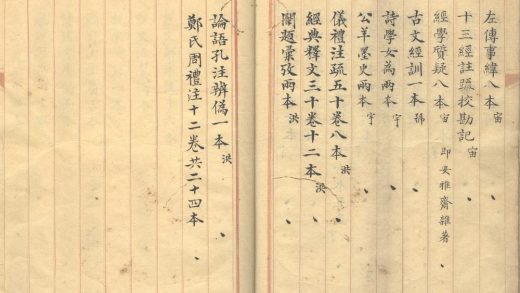 左傳事緯八本 宙
十三經註疏校勘記 宙
經學質疑八本 宙 即安雅齋雜著
古文經訓一本
詩學女為兩本 宇
公羊墨史兩本 宇
儀禮注疏五十卷八本 洪
經典釋文三十卷十二本 洪
題彙攷兩本 洪
論語孔注辨偽一本 洪
鄭氏周禮注十二卷共二十四本